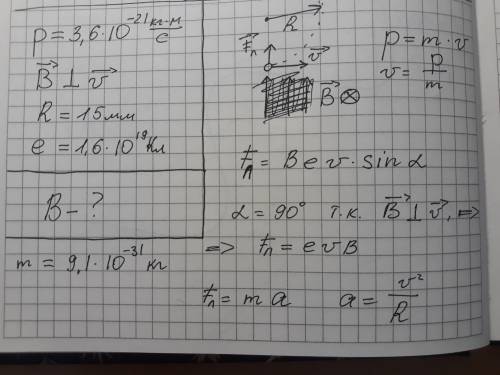 p = 3,6·10⁻²¹ кг·м/с
B⃗ ⊥ v⃗
R = 15 мм
e = 1,6·10¹⁹ Кл
B – ?
m = 9,1·10⁻³¹ кг
R
F⃗л
v⃗
B⃗ ⊗
p = m · v
v = p/m
Fл = B e v · sin α
α = 90° т.к. B⃗ ⊥ v⃗, =>
=> Fл = e v B
Fл = m a a = v²/R